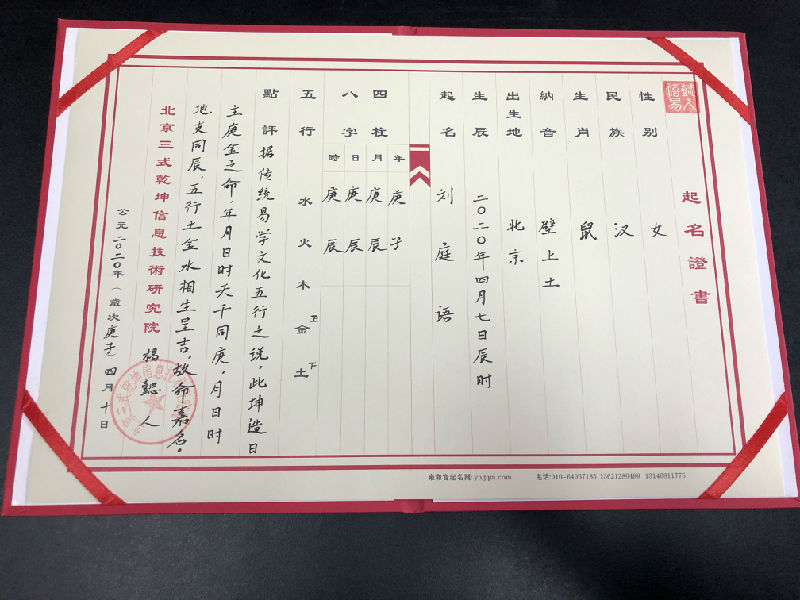 起名證書
性别 女
民族 汉
生肖 鼠
納音 壁上土
出生地 北京
生辰 二〇二〇年四月七日辰时
起名 刘庭语
四柱 年 月 日 時
八字 庚子 庚辰 庚辰 庚辰
五行 水 火 木 金 土
點評 据传统易学文化五行之说,此坤造日
主庚金之命,年月日时天干同庚,月日时
地支同辰,五行土金水相生呈吉,故命嘉名。
北京三式乾坤信息技術研究院 杨懿人
公元二〇二〇年(歲次庚子)四月十日
雍和宫起名网:yhgqm.com
电话:010-64007185 13621280499 13146811775